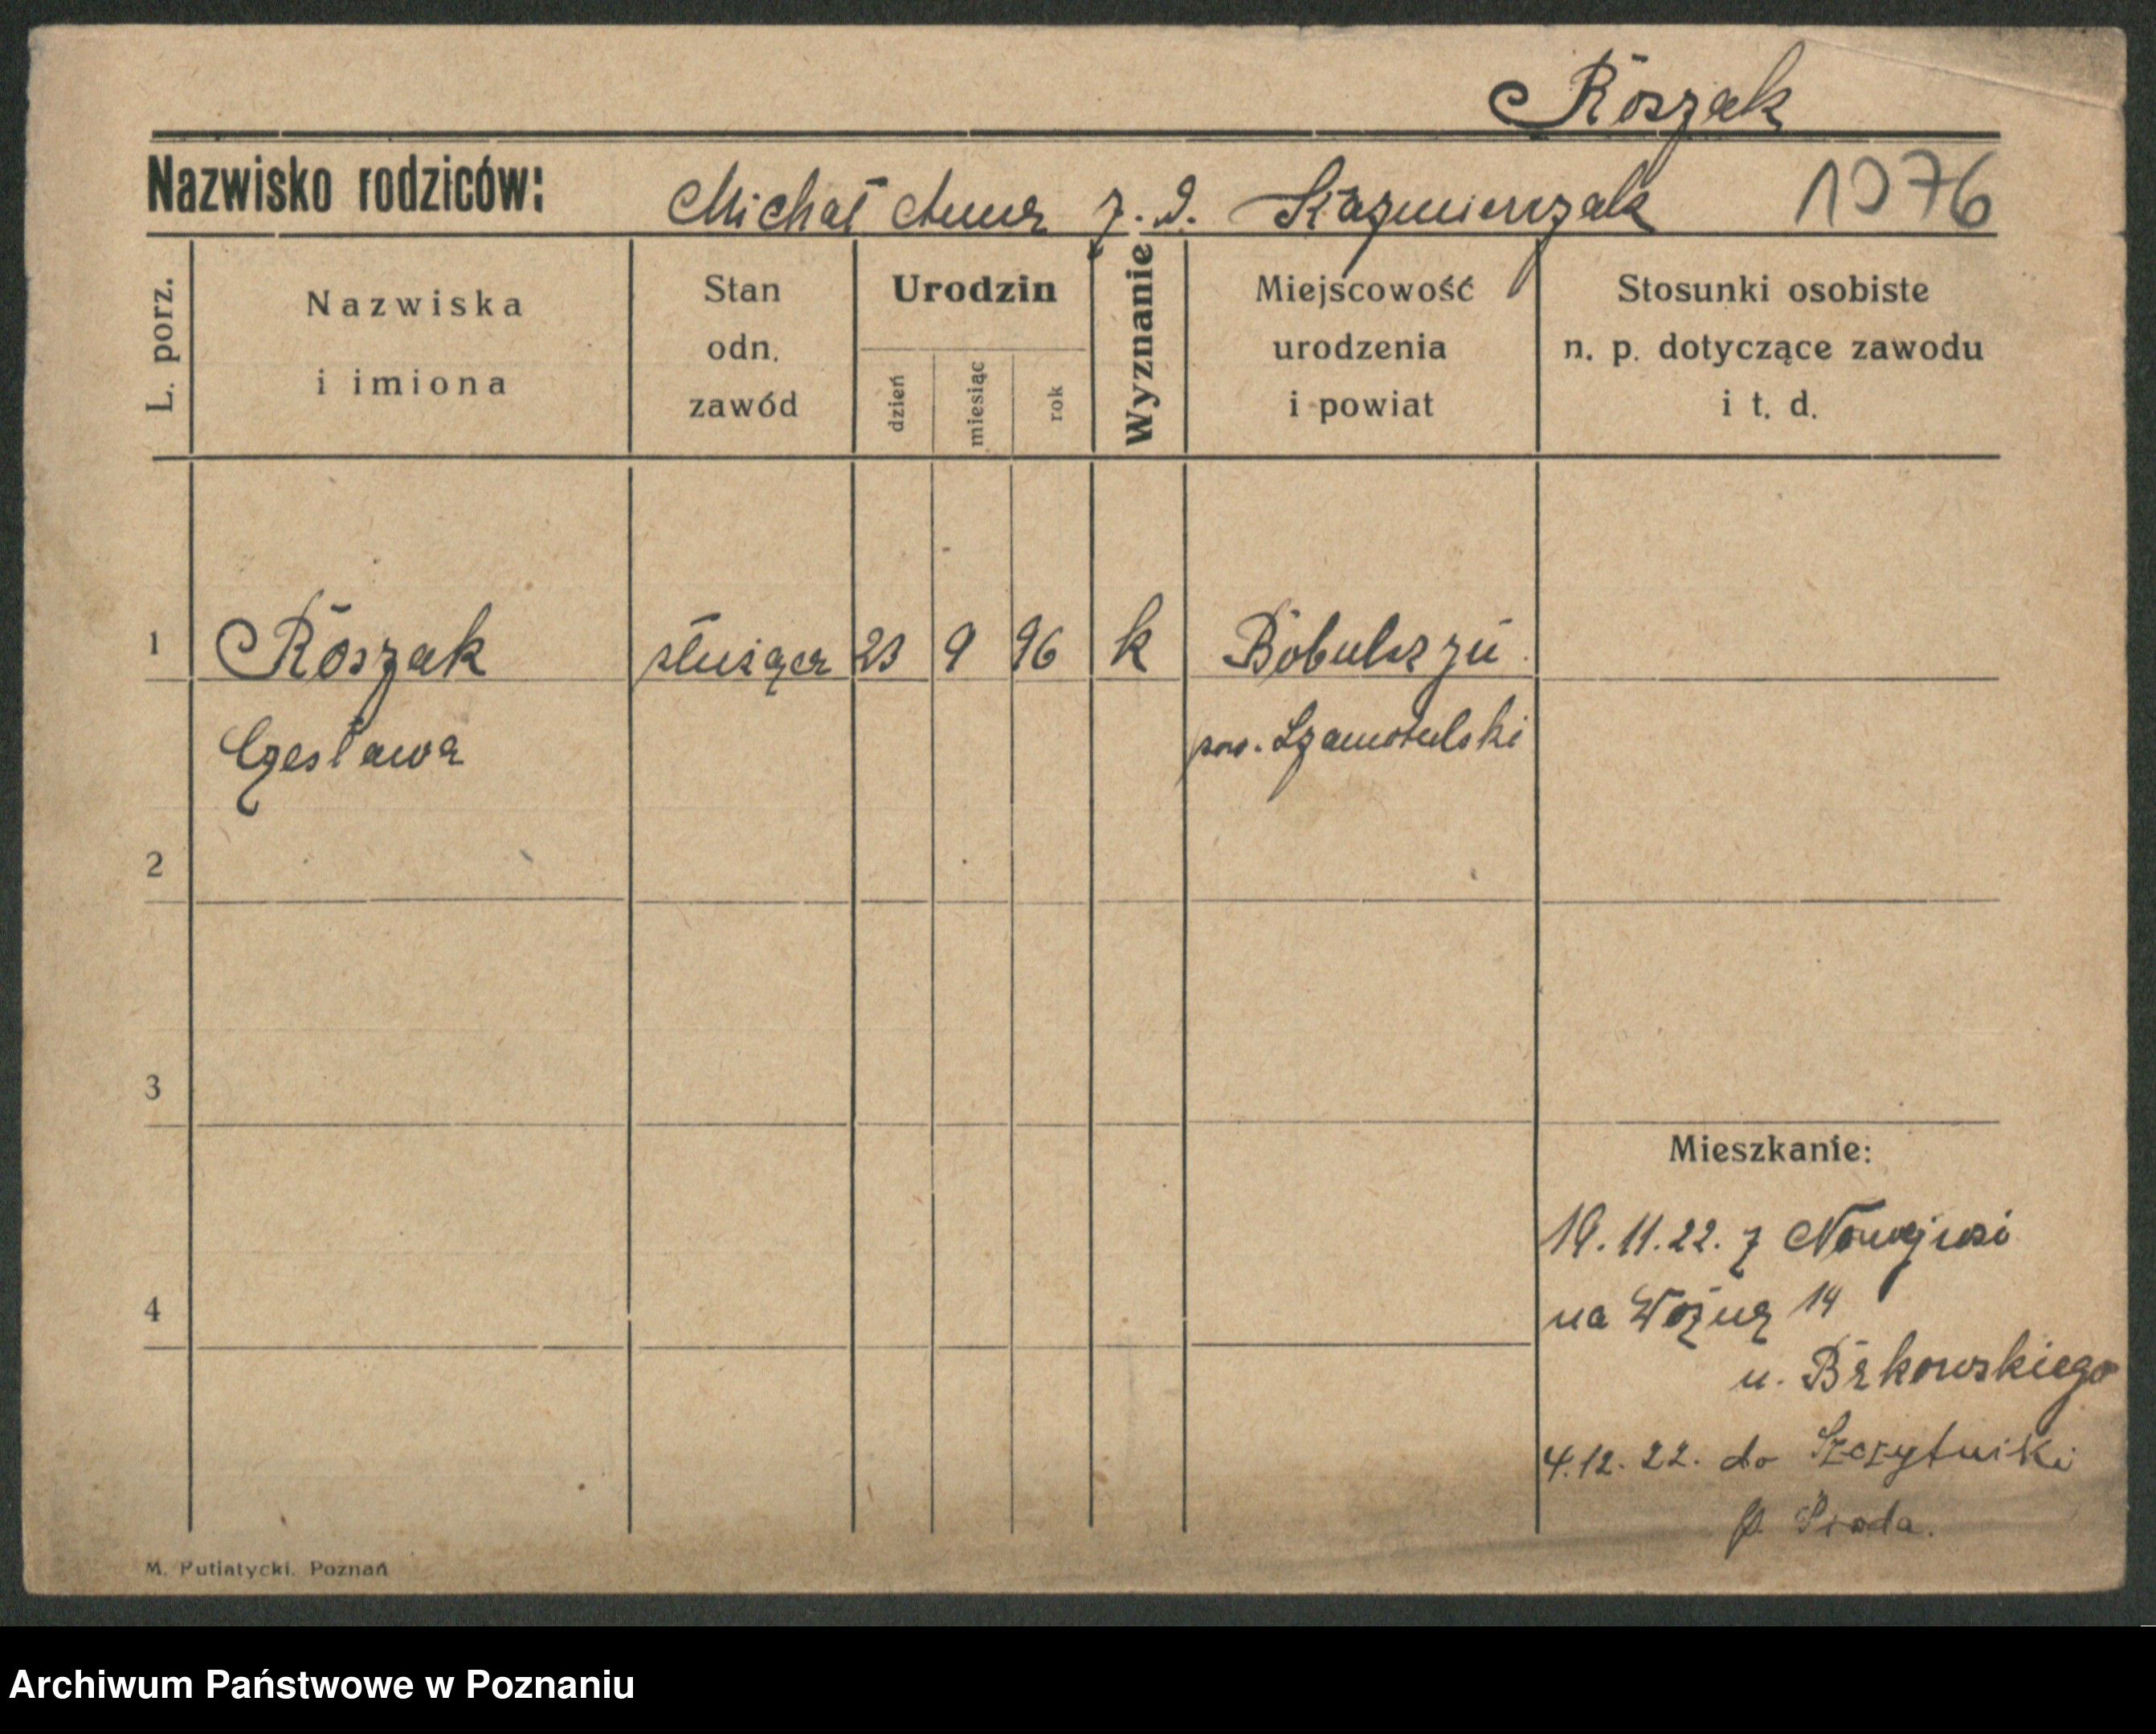 Roszak
Nazwisko rodziców: Michał Anna z. d. Kaźmierczak 1076
L. porz.
Nazwiska i imiona
Stan odn. zawód
Urodzin
dzień
miesiąc
rok
Wyznanie
Miejscowość urodzenia i powiat
Stosunki osobiste n. p. dotyczące zawodu i t. d.
1 Roszak służąca 23 9 96 k
Czesława pow. Szamotulski
2
3
Mieszkanie:
19.11.22. z Nowejwsi
4
na Woźną 14
u. Bąkowskiego
4.12.22. do Szczytniki
p. Środa.
M. Putiatycki. Poznań
Archiwum Państwowe w Poznaniu